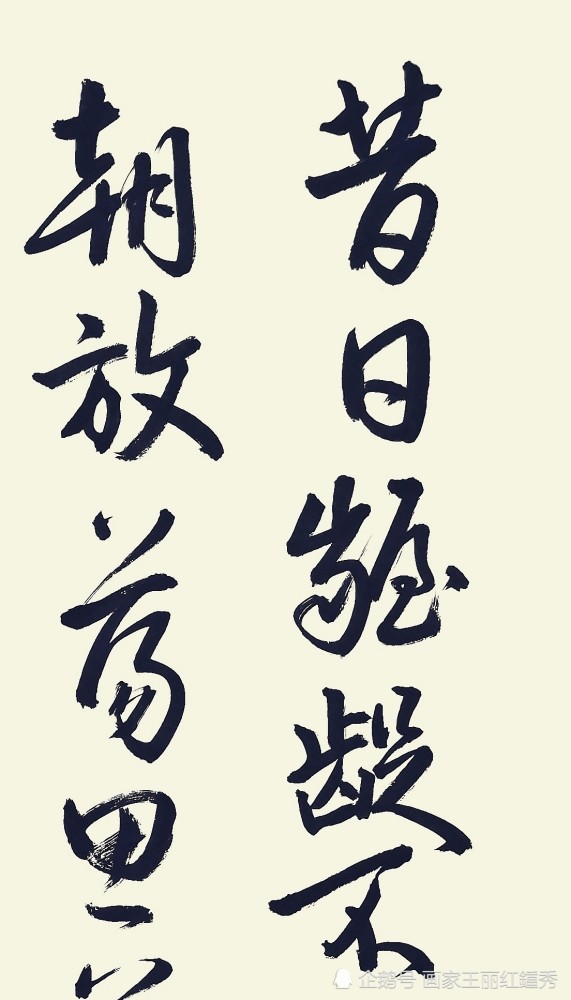 昔日龌龊不
朝放荡思
企鹅号 画家王丽红